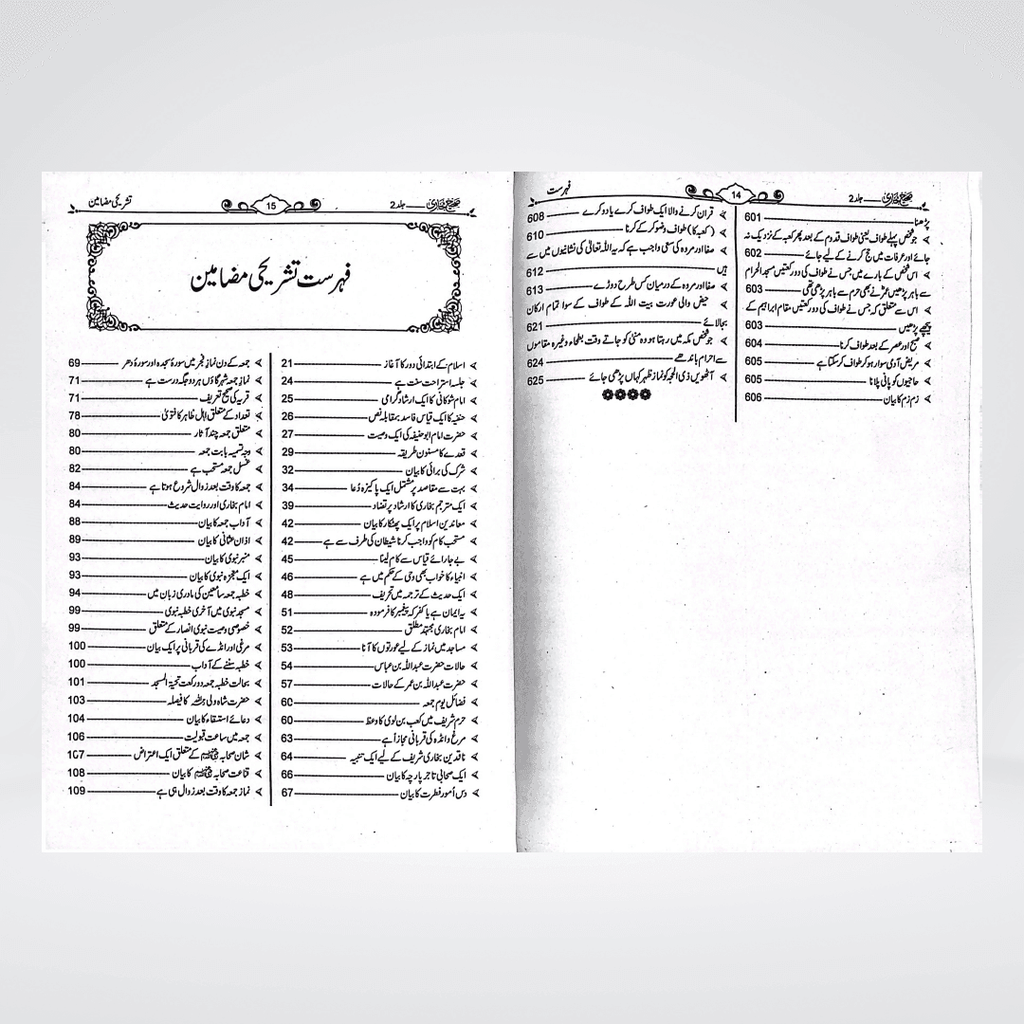 صحیح بخاری — جلد 2
14
فہرست
پڑھنا 601
جو شخص پہلے طواف یعنی طواف قدوم کے بعد پھر کعبہ کے نزدیک نہ
جائے اور عرفات میں حج کرنے کے لیے جائے 602
اس شخص کے بارے میں جس نے طواف کی دو رکعتیں مسجد الحرام
سے باہر پڑھیں عمرؓ نے بھی حرم سے باہر پڑھی تھی 603
اس سے متعلق کہ جس نے طواف کی دو رکعتیں مقام ابراہیم کے
پیچھے پڑھیں 603
صبح اور عصر کے بعد طواف کرنا 604
مریض آدمی سوار ہو کر طواف کر سکتا ہے 605
حاجیوں کو پانی پلانا 605
زم زم کا بیان 606
قران کرنے والا ایک طواف کرے یا دو کرے 608
(کعبہ کا) طواف وضو کر کے کرنا 610
صفا اور مروہ کی سعی واجب ہے کہ یہ اللہ تعالیٰ کی نشانیوں میں سے
ہیں 612
صفا اور مروہ کے درمیان کس طرح دوڑے 613
حیض والی عورت بیت اللہ کے طواف کے سوا تمام ارکان
بجا لائے 621
جو شخص مکہ میں رہتا ہو وہ منیٰ کو جاتے وقت بطحاء وغیرہ مقاموں
سے احرام باندھے 624
آٹھویں ذی الحجہ کو نماز ظہر کہاں پڑھی جائے 625
صحیح بخاری — جلد 2
15
تشریحی مضامین
فہرست تشریحی مضامین
اسلام کے ابتدائی دور کا آغاز 21
جلسہ استراحت سنت ہے 24
امام شوکانی کا ایک ارشاد گرامی 25
حنفیہ کا ایک قیاس فاسد بمقابلہ نص 26
حضرت امام ابو حنیفہ کی ایک وصیت 27
قعدے کا مسنون طریقہ 29
شرک کی برائی کا بیان 32
بہت سے مقاصد پر مشتمل ایک پاکیزہ دعا 34
ایک مترجم بخاری کا ارشاد پر تضاد 39
معاندین اسلام پر ایک پھٹکار کا بیان 42
مستحب کام کو واجب کرنا شیطان کی طرف سے ہے 42
بے جا رائے قیاس سے کام لینا 45
انبیاء کا خواب بھی وحی کے حکم میں ہے 46
ایک حدیث کے ترجمہ میں تحریف 48
یہ ایمان ہے یا کفر کہ پیغمبر کا فرمودہ 51
امام بخاری مجتہد مطلق 52
مساجد میں نماز کے لیے عورتوں کا آنا 53
حالات حضرت عبداللہ بن عباس 54
حضرت عبداللہ بن عمر کے حالات 57
فضائل یوم جمعہ 60
حرم شریف میں کعب بن لوی کا وعظ 60
مرغ و انڈہ کی قربانی مجازاً ہے 63
ناقدین بخاری شریف کے لیے ایک تنبیہ 64
ایک صحابی تاجر پارچہ کا بیان 66
دس امور فطرت کا بیان 67
جمعہ کے دن نماز فجر میں سورۂ سجدہ اور سورۂ دھر 69
نماز جمعہ شہر گاؤں ہر دو جگہ درست ہے 71
قریہ کی صحیح تعریف 71
تعداد کے متعلق اہل ظاہر کا فتویٰ 78
متعلق جمعہ چند آثار 80
وجہ تسمیہ بابت جمعہ 80
غسل جمعہ مستحب ہے 82
جمعہ کا وقت بعد زوال شروع ہوتا ہے 84
امام بخاری اور روایت حدیث 84
آداب جمعہ کا بیان 88
اذان عثمانی کا بیان 89
منبر نبوی کا بیان 93
ایک معجزہ نبوی کا بیان 93
خطبہ جمعہ سامعین کی مادری زبان میں 94
مسجد نبوی میں آخری خطبہ نبوی 99
خصوصی وصیت نبوی انصار کے متعلق 99
مرغی اور انڈے کی قربانی پر ایک بیان 100
خطبہ سننے کے آداب 100
بحالت خطبہ جمعہ دو رکعت تحیۃ المسجد 101
حضرت شاہ ولی اللہ کا فیصلہ 103
دعائے استسقاء کا بیان 104
جمعہ میں ساعت قبولیت 106
شان صحابہ کے متعلق ایک اعتراض 107
قناعت صحابہ کا بیان 108
نماز جمعہ کا وقت بعد زوال ہی ہے 109